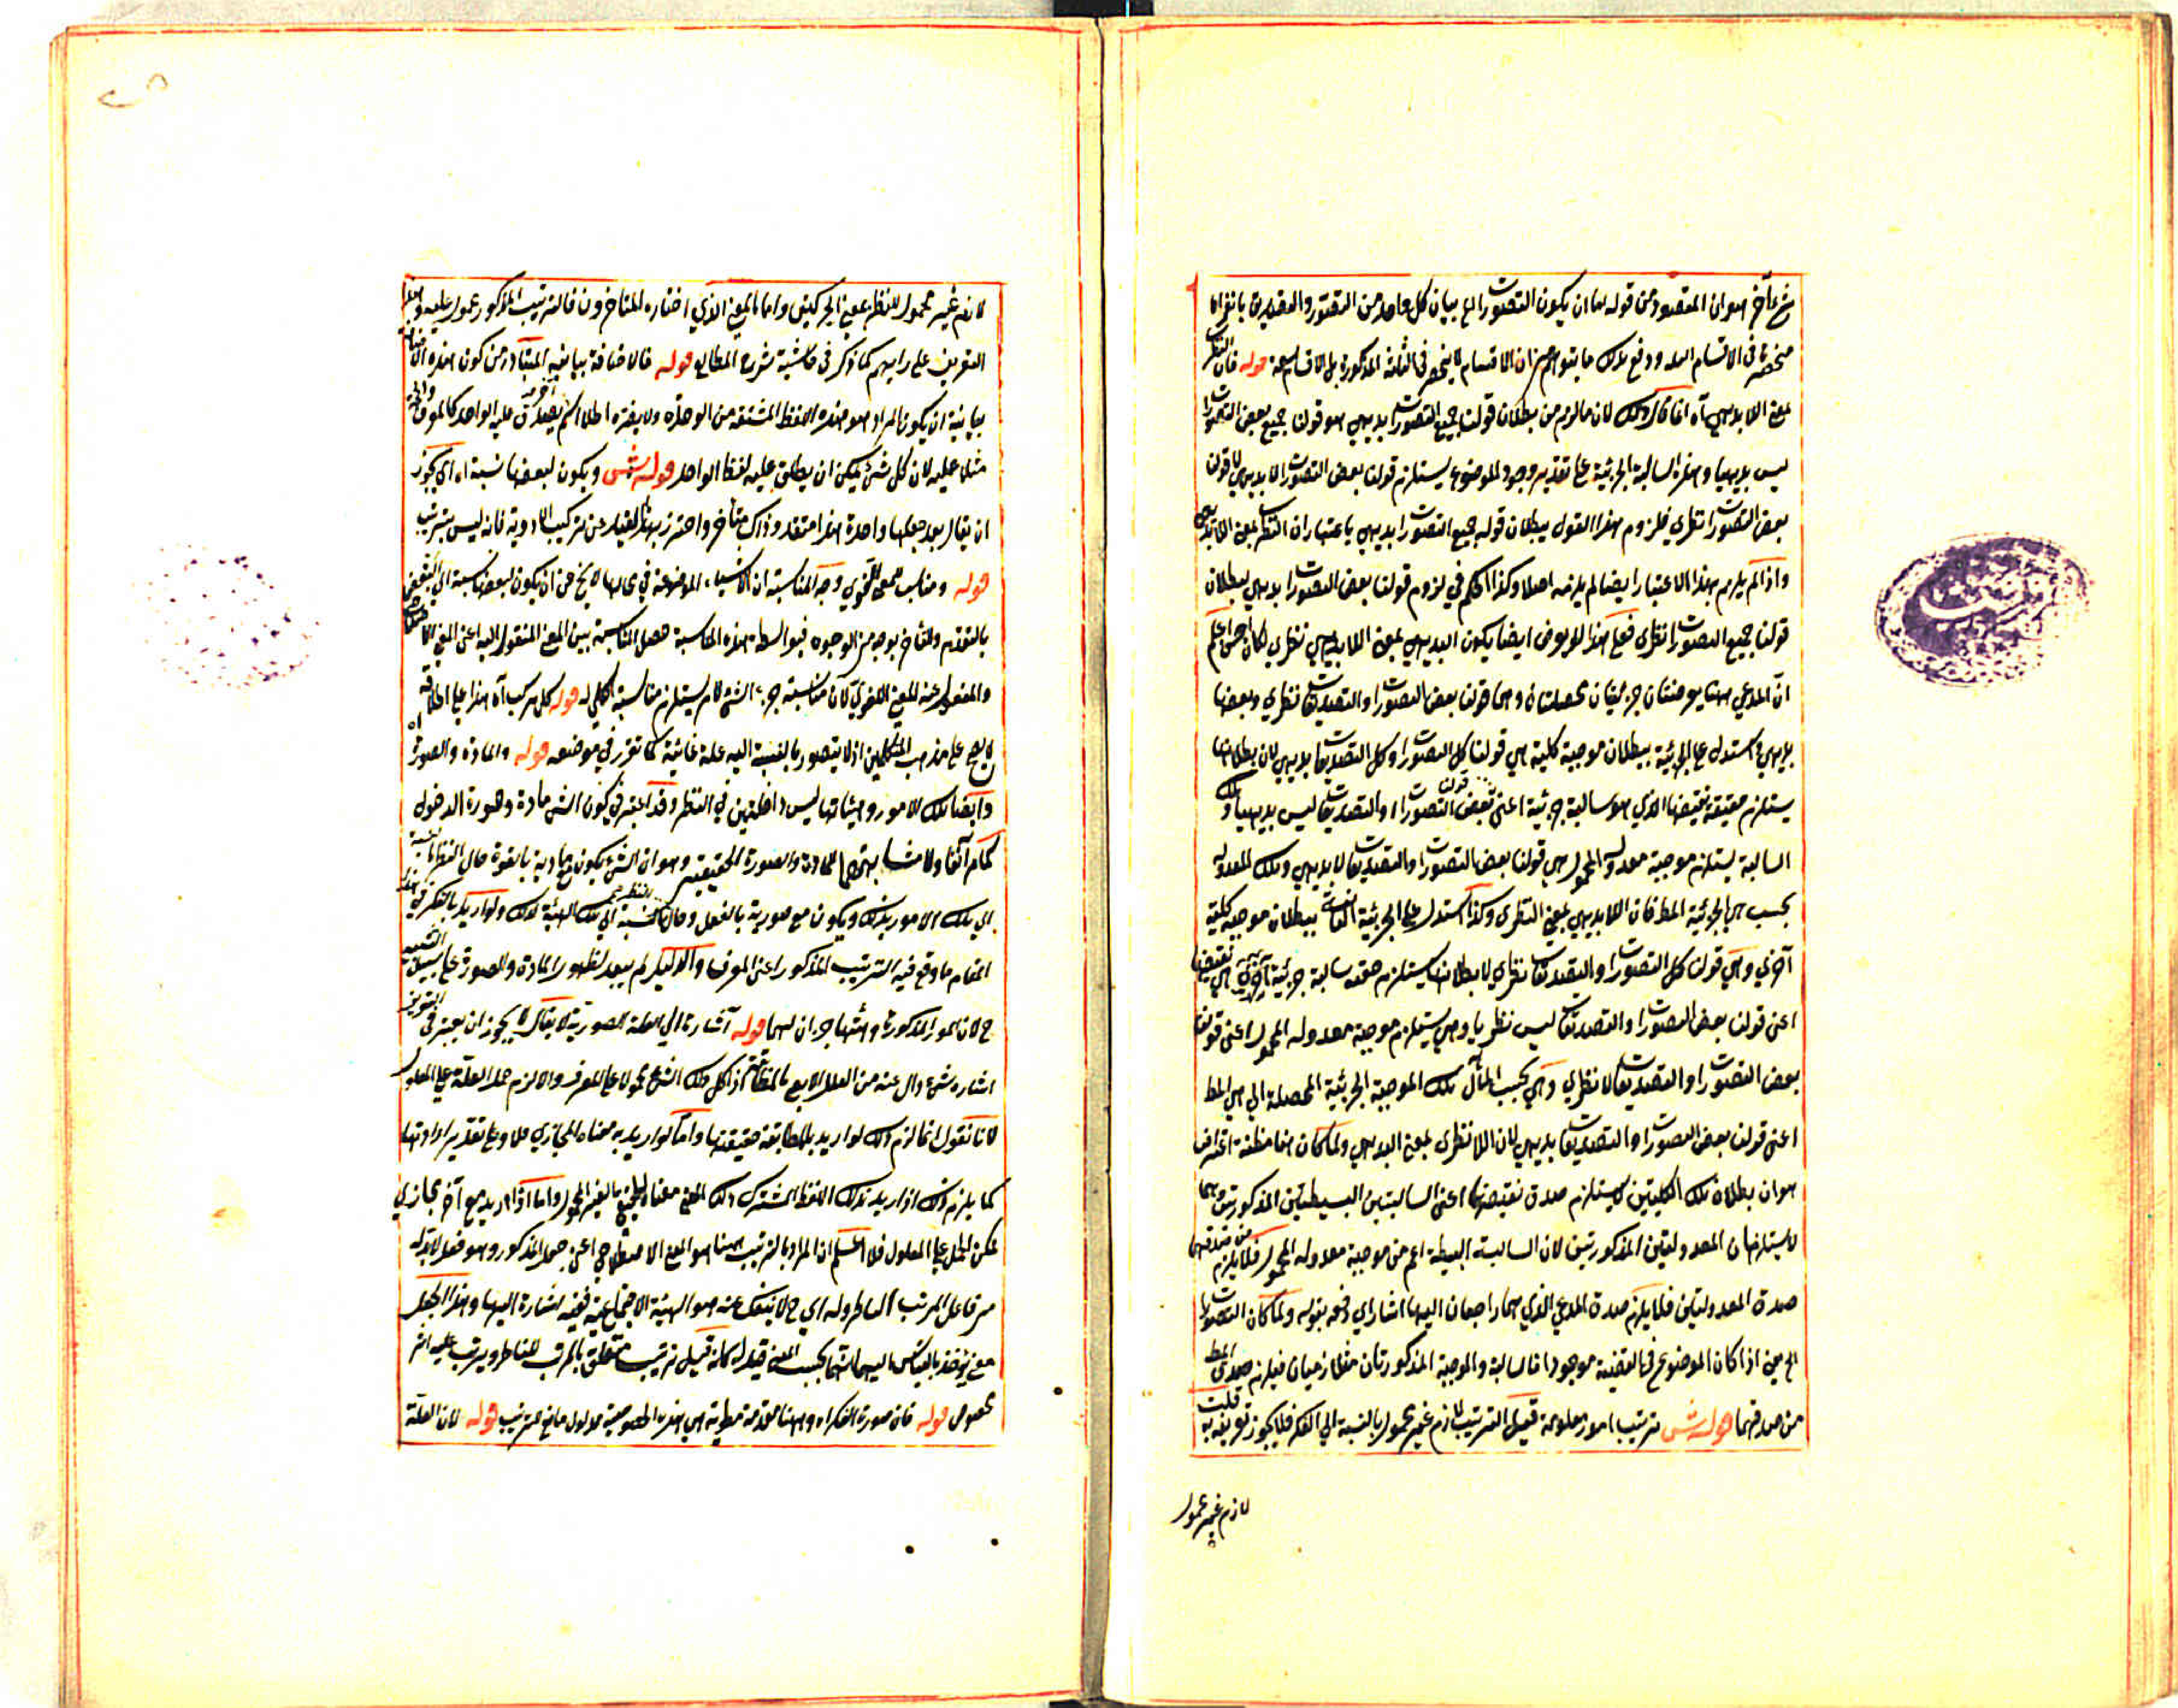 آخر هو ان المقصود من قوله اما ان يكون التصورات الخ بيان كل واحد من التصور والتصديق بانفراد
منحصر في الاقسام الثلثة ودفع بذلك ما يتوهم من ان الاقسام لا ينحصر في الثلثة المذكورة بل الاقسام تسعة قوله فان النظري
بمعنى اللابديهي آه انما قال ذلك لان ما لزم من بطلان قولنا جميع التصورات بديهي هو قولنا بعض التصورات
ليس بديهيا وهذه السالبة الجزئية على تقدير وجود الموضوع يستلزم قولنا بعض التصورات لا بديهي لا قولنا
بعض التصورات نظري فلزوم هذا القول ببطلان قوله جميع التصورات بديهي باعتبار ان النظري بمعنى اللابديهي
واذا لم يلزم بهذا الاعتبار ايضا لم يلزمه اصلا وكذا الحكم في لزوم قولنا بعض التصورات بديهي ببطلان
قولنا جميع التصورات نظري فعلى هذا لو عرض ايضا بكون البديهي بمعنى اللانظري لكان احسن اعلم
ان المدعى ههنا موجبتان جزئيتان محصلتان وهما قولنا بعض التصورات والتصديقات نظري وبعضها
بديهي فاستدل على الجزئية ببطلان موجبة كلية هي قولنا كل التصورات وكل التصديقات بديهي لان بطلانها
يستلزم حقيقة نقيضها الذي هو سالبة جزئية اعني قولنا بعض التصورات او التصديقات ليس بديهيا وتلك
السالبة يستلزم موجبة معدولة المحمول هي قولنا بعض التصورات او التصديقات لا بديهي وتلك المعدولة
بحسب هي الجزئية المط فان اللابديهي بمعنى النظري وكذا استدل على الجزئية الثانية ببطلان موجبة كلية
اخرى وهي قولنا كل التصورات او التصديقات نظري لا بطلانها يستلزم حقيقة سالبة جزئية اخرى هي نقيضها
اعني قولنا بعض التصورات او التصديقات ليس نظريا وهي يستلزم موجبة معدولة المحمول اعني قولنا
بعض التصورات او التصديقات لا نظري وهي بحسب المآل تلك الموجبة الجزئية المحصلة التي هي المط
اعني قولنا بعض التصورات او التصديقات بديهي لان اللانظري بمعنى البديهي ولما كان هنا مظنة اعتراض
هو ان بطلان تلك الكليتين لا يستلزم صدق نقيضهما اعني السالبتين البسيطتين المذكورتين وهما
لا يستلزمان المعدولتين المذكورتين لان السالبة البسيطة اعم من موجبة معدولة المحمول فلا يلزم من صدقهما
صدق المعدولتين فلا يلزم صدق المدعى الذي هما راجعان اليها اشار الى دفعه بقوله ولما كان التصورات
الخ حين اذا كان الموضوع في القضية موجودا فالسالبة والموجبة المذكورتان متلازمتان فيلزم صدق المط
من صدقهما قوله ش ترتيب امور معلومة قيل الترتيب لازم غير محمول بالنسبة الى الفكر فلا يجوز تعريفه به قلت
لازم غير محمول
لازم غير محمول للنظر بمعنى الحركتين واما بالمعنى الذي اختاره المتاخرون فالترتيب المذكور محمول عليه
التعريف على رايهم كما ذكر في حاشية شرح المطالع قوله فالاضافة بيانية المتبادر من كون هذه الاضافة
بيانية ان يكون المراد هو هذه اللفظ المشتقة من الوحدة ولا يضره اطلاق اسم يصدق عليه الواحد كالمعرف
مثلا عليه لان كل شيء يمكن ان يطلق عليه لفظ الواحد قوله ش ويكون لبعضها نسبة اه اي يجوز
ان يقال بعد جعلها واحدة هذا متقدم وذاك متاخر واحترز بهذا القيد عن تركيب الادوية فانه ليس بترتيب
قوله ومناسب للمعنى اللغوي وجه المناسبة ان الاشياء الموضوعة في محالها لا يخ من ان يكون لبعضها نسبة الى البعض
بالتقدم والتاخر بوجه من الوجوه فبواسطة هذه المناسبة حصل المناسبة بين المعنى المنقول اليه اعني المعنى الاصطلاحي
والمنقول عنه المعنى اللغوي لان مناسبة جزء الشيء لامر يستلزم مناسبة الكل له قوله كل مركب آه هذا على اطلاقه
لا يصح على مذهب المتكلمين اذ لا يتصور بالنسبة اليه علة غائية كما تقرر في موضعه قوله والمادة والصورة آه
وايضا تلك الامور وهيئاتها ليس داخلتين في النظر وقد اعتبر في كون الشيء مادة وصورة الدخول
كما مر آنفا ولا مشابهتهما للمادة والصورة الحقيقية وهو ان الشيء يكون مع مادية بالقوة حال النظر بالنسبة
الى تلك الامور كذلك ويكون مع صورية بالفعل وحال النظر بالنسبة الى تلك الهيئة كذلك ولو اريد بالفكر في هذا
المقام ما وقع فيه الترتيب المذكور اعني المعرف والدليل لم يبعد لظهور المادة والصورة على سبيل التشبيه
ح لان الامور المذكورة وهيئتها جزءان لهما قوله اشارة الى العلة الصورية لا يقال لا يجوز ان يعتبر في التعريف
اشارة شيء دال عنه من العلل الاربع بالمطابقة اذا كان ذلك الشيء محمولا على المعرف والا لزم حمل العلة على المعلول
لانا نقول انما لزم ذلك لو اريد بالمطابقة حقيقتها واما لو اريد به معناه المجازي فلا وعلى تقدير ارادتها
كما يلزم ذلك اذا اريد بذلك اللفظ المشترك ذلك المعنى معناه الحقيقي الغير المحمول واما اذا اريد معنى آخر مجازي
يمكن الحمل على المعلول فلا اعلم ان المراد بالترتيب ههنا هو المعنى الاصطلاحي اعني جعل المذكور وهو فعل لا بد له
من فاعل المرتب الناظر وله اي ح لا ينفك عنه هو الهيئة الاجتماعية ففيه اشارة اليها وهذا الجعل
بالقياس اليهما اثنا بحسب المعنى قيد له كانه قيل ترتيب متعلق بالمرتب للناظر ويترتب عليه اثر
مخصوص قوله فان صورة الفكر اه وههنا مقدمة مطوية هي هذه الخصوصية مدلول ما مع الترتيب قوله لان العلة